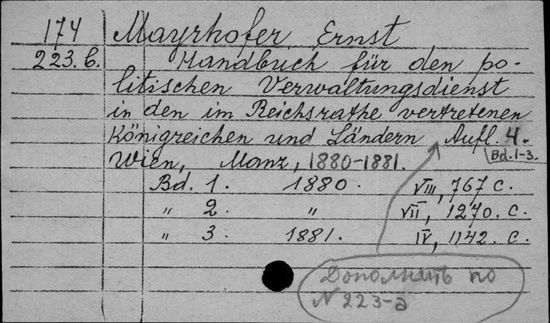 174 Mayrhofer, Ernst
223.б. Handbuch für den po-
litischen Verwaltungsdienst
in den im Reichsrathe vertretenen
Königreichen und Ländern Aufl. 4.
Wien, Manz, 1880-1881. Bd. 1-3.
Bd. 1. 1880. VIII, 767 c.
„ 2. „ VII, 1270. c.
„ 3. 1881. IV, 1142. c.
Дополнять по
N 223-а